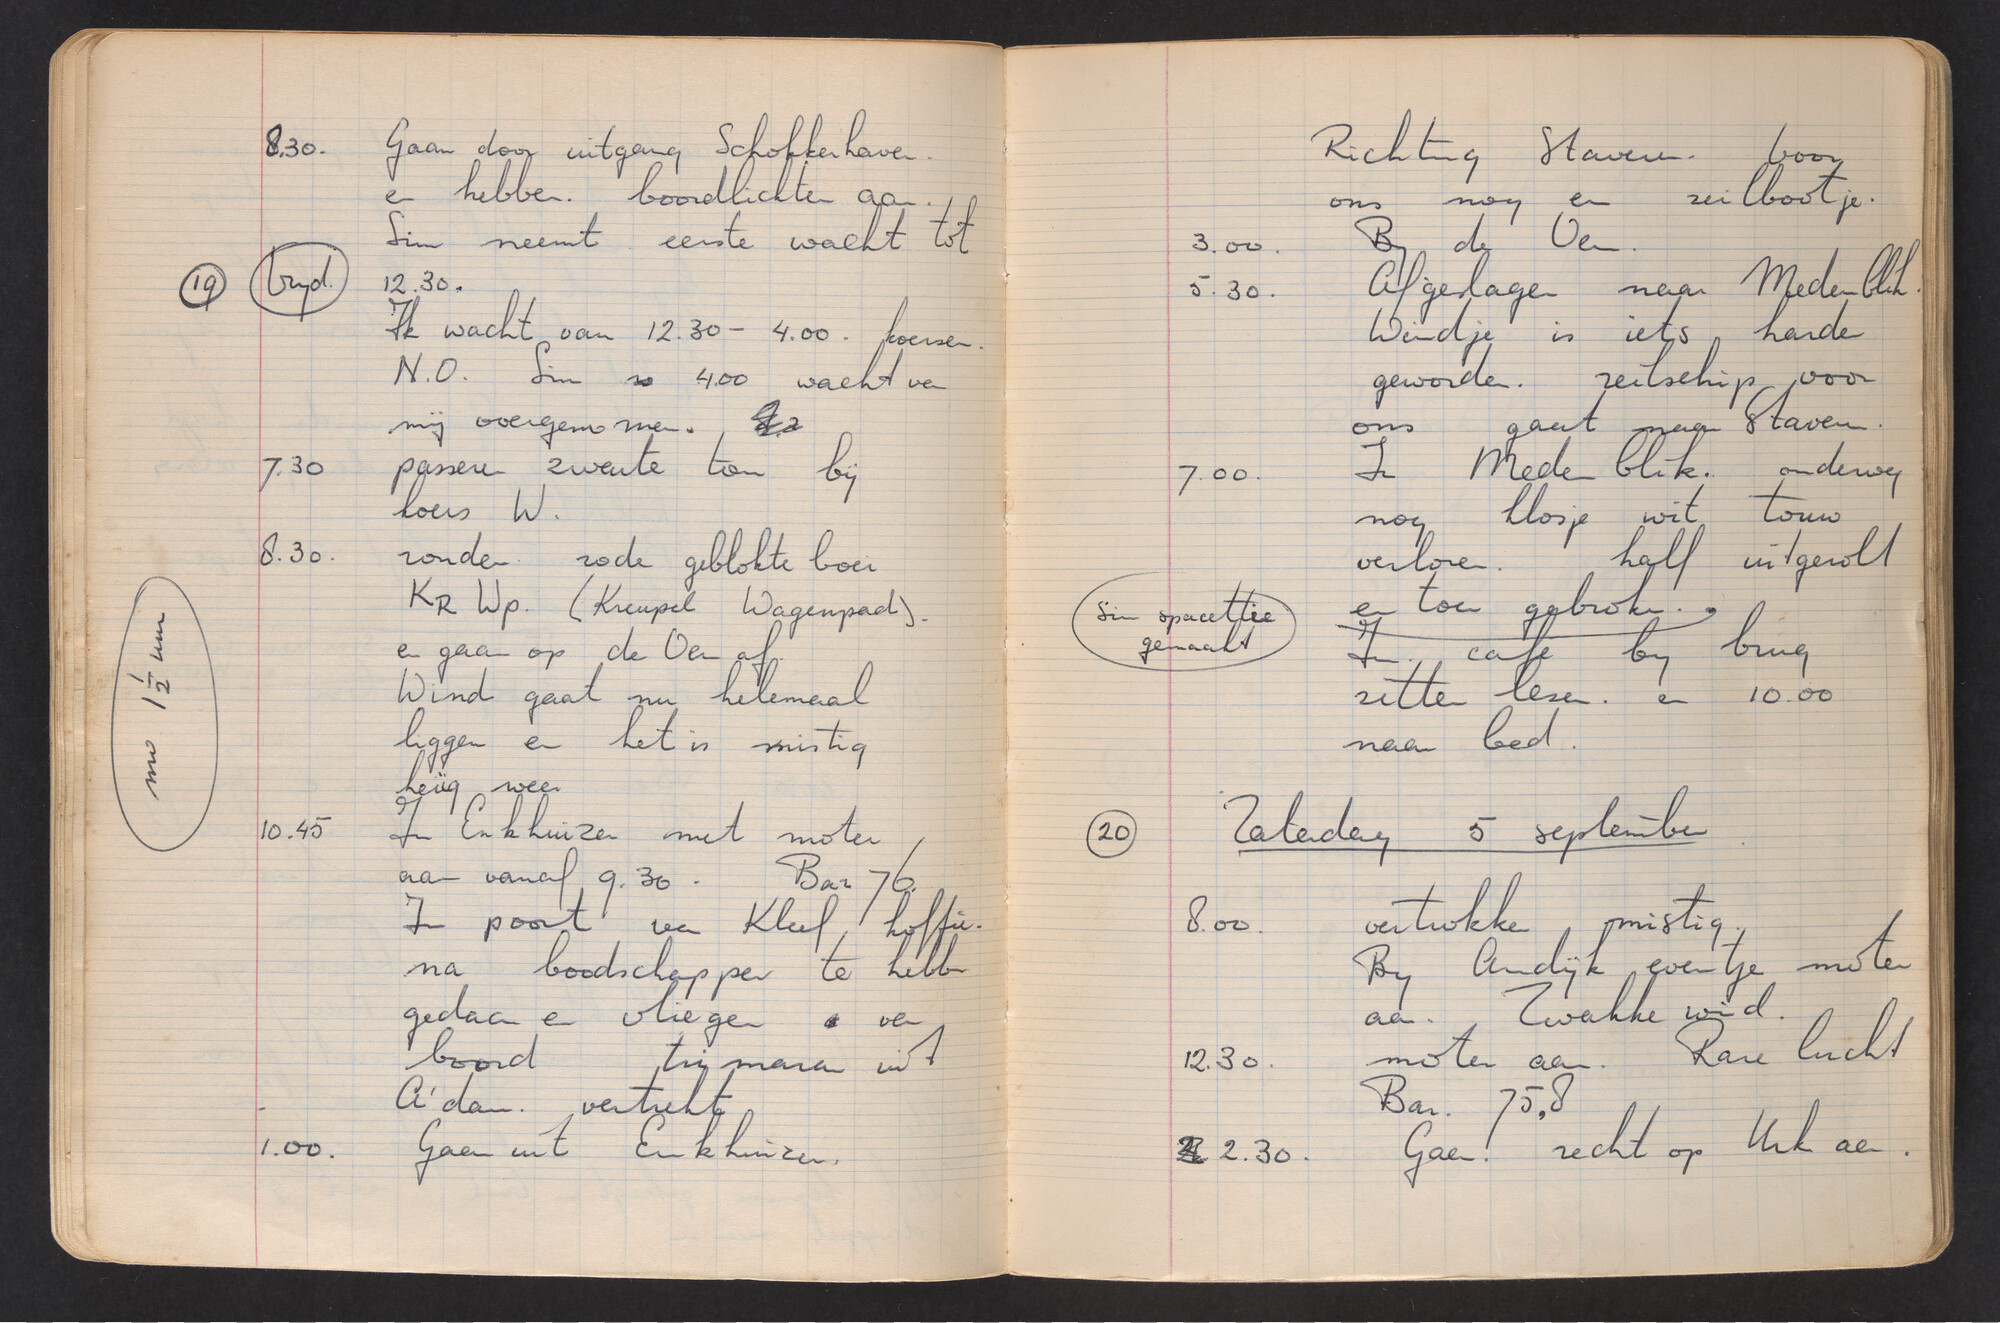 8.30. Gaan door uitgang Schokkerhaven.
en hebben. boordlichten aan.
Sim neemt eerste wacht tot
19 Vrijd. 12.30.
Ik wacht van 12.30 - 4.00. koersen.
N.O. Sim 4.00 wacht van
mij overgenomen.
7.30 passeren zwarte ton bij
koers W.
8.30. ronden rode geblokte boei
KR Wp. (Kreupel Wagenpad).
en gaan op de Ven af.
Wind gaat nu helemaal
liggen en het is mistig
heiig weer
mo 1 1/2 uur
10.45 In Enkhuizen met moter
aan vanaf 9.30. Bar 76.
In poort van Kleef koffie.
na boodschappen te hebben
gedaan en vliegen van
boord trimaran uit
A'dam. vertrekt
1.00. Gaan uit Enkhuizen.
Richting Staveren. voor
ons nog en zeilbootje.
3.00. By de Ven.
5.30. Afgeslagen naar Medenblik.
Windje is iets harder
geworden. zeilschip voor
ons gaat naar Staveren.
7.00. In Medenblik. onderweg
nog klosje wit touw
verloren. half uitgerolt
en toen gebroken.
Sim spacettie
gemaakt
In cafe by brug
zitten lezen. en 10.00
naar bed.
20 Zaterdag 5 september
8.00. vertrokken mistig.
By Andijk eventje moter
aan. Zwakke wind.
12.30. moter aan. Rare lucht
Bar. 75,8
2.30. Gaan recht op Urk aan.